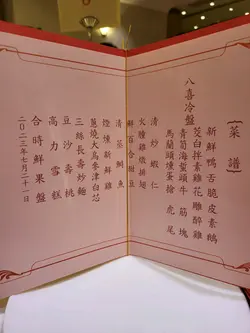 〔菜譜〕
八喜冷盤
新鮮鴨舌脆皮素鵝
茭白拌素雞花雕醉雞
海蜇頭牛筋塊
馬蘭頭燻蛋搶虎尾
清炒蝦仁
火腫雞燉排翅
鮮百合甜豆
清蒸鰣魚
煙燻新鮮雞
蔥燒大烏參津白芯
三絲長壽炒麵
豆沙壽桃
高力雪糕
合時鮮果盤
二〇二三年七月二十一日